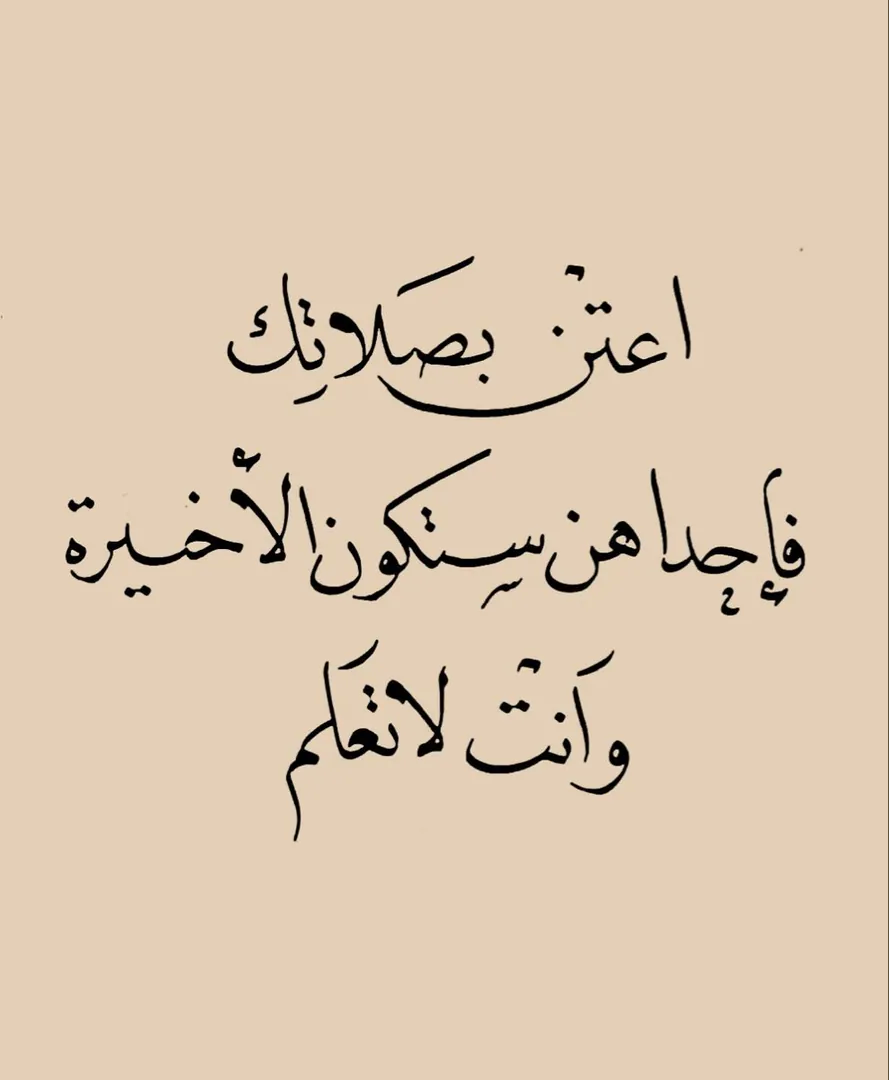 اعتن بصَلاتِك
فإحداهن ستكون الأخيرة
وَانت لاتعَلم